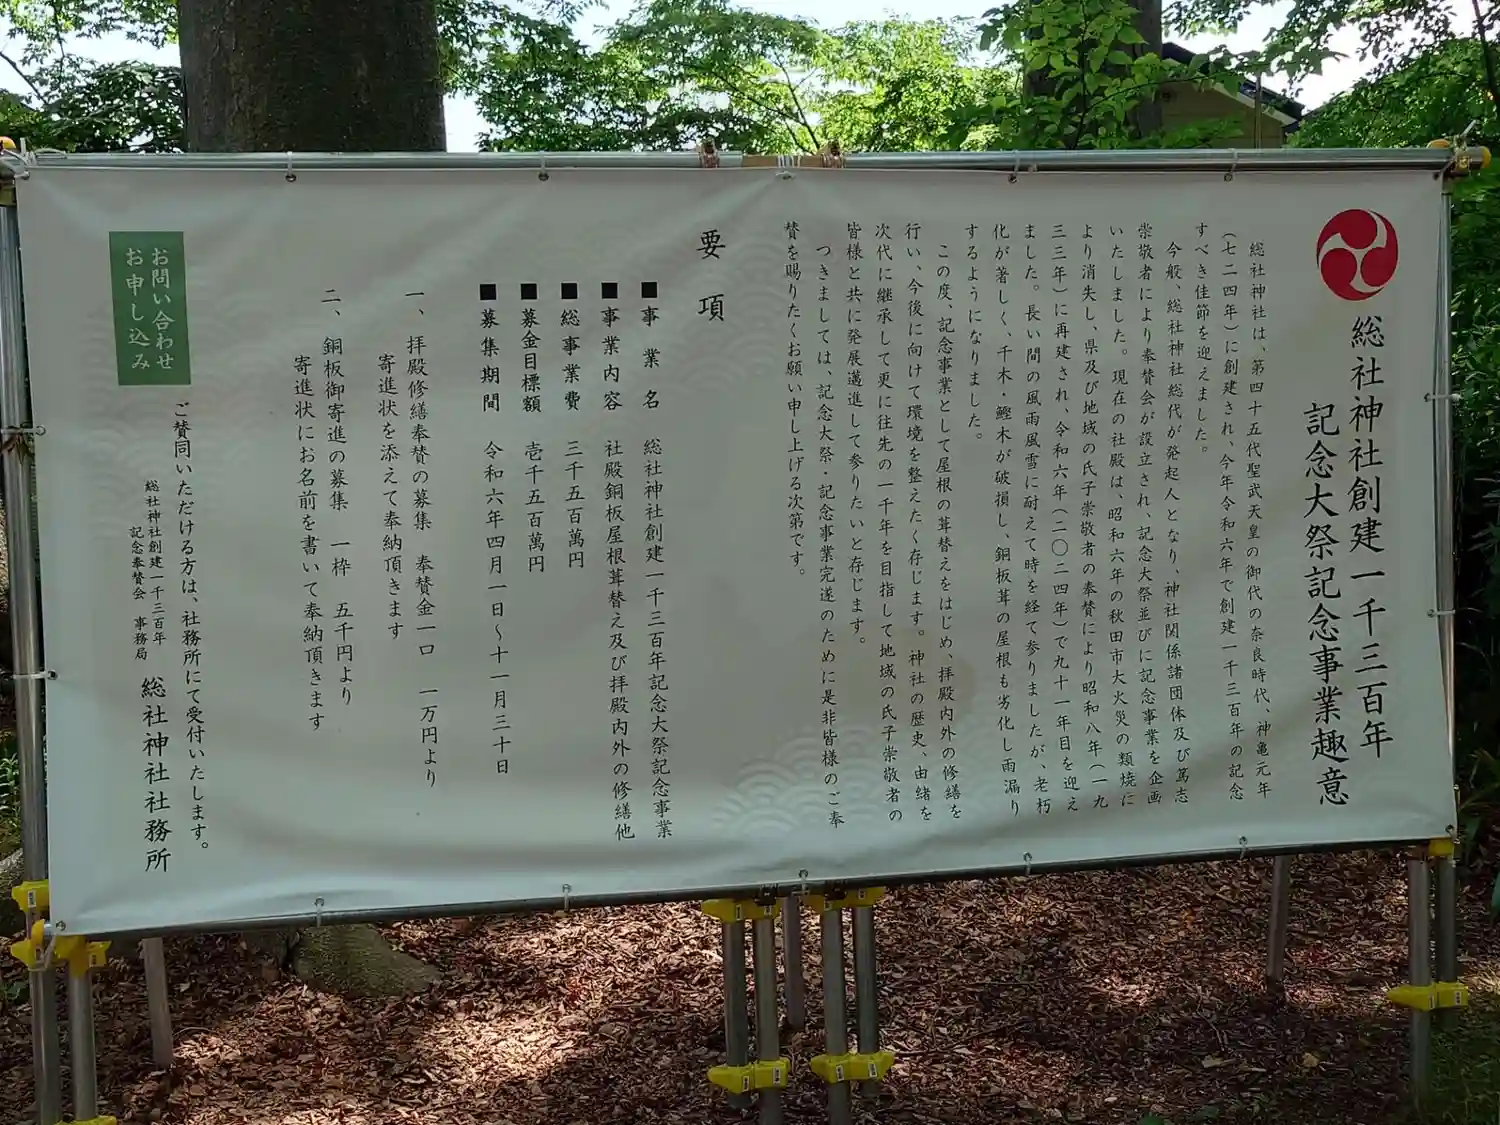 総社神社創建一千三百年
記念大祭記念事業趣意
総社神社は、第四十五代聖武天皇の御代の奈良時代、神亀元年
（七二四年）に創建され、今年令和六年で創建一千三百年の記念
すべき佳節を迎えました。
今般、総社神社総代が発起人となり、神社関係諸団体及び篤志
崇敬者により奉賛会が設立され、記念大祭並びに記念事業を企画
いたしました。現在の社殿は、昭和六年の秋田市大火災の類焼に
より消失し、県及び地域の氏子崇敬者の奉賛により昭和八年（一九
三三年）に再建され、令和六年（二〇二四年）で九十一年目を迎え
ました。長い間の風雨風雪に耐えて時を経て参りましたが、老朽
化が著しく、千木・鰹木が破損し、銅板葺の屋根も劣化し雨漏り
するようになりました。
この度、記念事業として屋根の葺替えをはじめ、拝殿内外の修繕を
行い、今後に向けて環境を整えたく存じます。神社の歴史、由緒を
次代に継承して更に往先の一千年を目指して地域の氏子崇敬者の
皆様と共に発展邁進して参りたいと存じます。
つきましては、記念大祭・記念事業完遂のために是非皆様のご奉
賛を賜りたくお願い申し上げる次第です。
要項
■事業名 総社神社創建一千三百年記念大祭記念事業
■事業内容 社殿銅板屋根葺替え及び拝殿内外の修繕他
■総事業費 三千五百萬円
■募金目標額 壱千五百萬円
■募集期間 令和六年四月一日～十一月三十日
一、拝殿修繕奉賛の募集 奉賛金一口 一万円より
寄進状を添えて奉納頂きます
二、銅板御寄進の募集 一枠 五千円より
寄進状にお名前を書いて奉納頂きます
お問い合わせ
お申し込み
ご賛同いただける方は、社務所にて受付いたします。
総社神社創建一千三百年
記念奉賛会 事務局
総社神社社務所